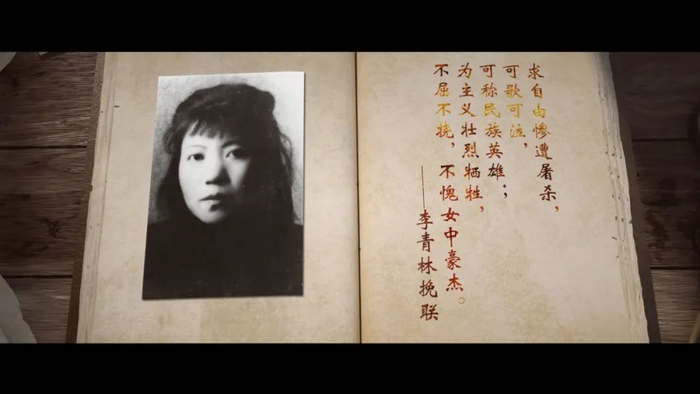 求自由惨遭屠杀，
可歌可泣，
可称民族英雄；
为主义壮烈牺牲，
不屈不挠，不愧女中豪杰。
——李青林挽联